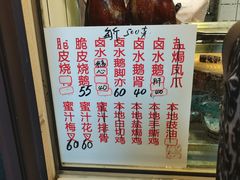 每斤 500克
脆皮烧
脆皮烧鹅 55
卤水鹅 40
卤水鹅脚亦 60
卤水鹅肾 40
卤水鹅 肝 40
盐焗凤爪
蜜汁梅叉 60
蜜汁花叉 60
蜜汁排骨
本地白切鸡
本地盐焗鸡
本地手撕鸡
本地豉油